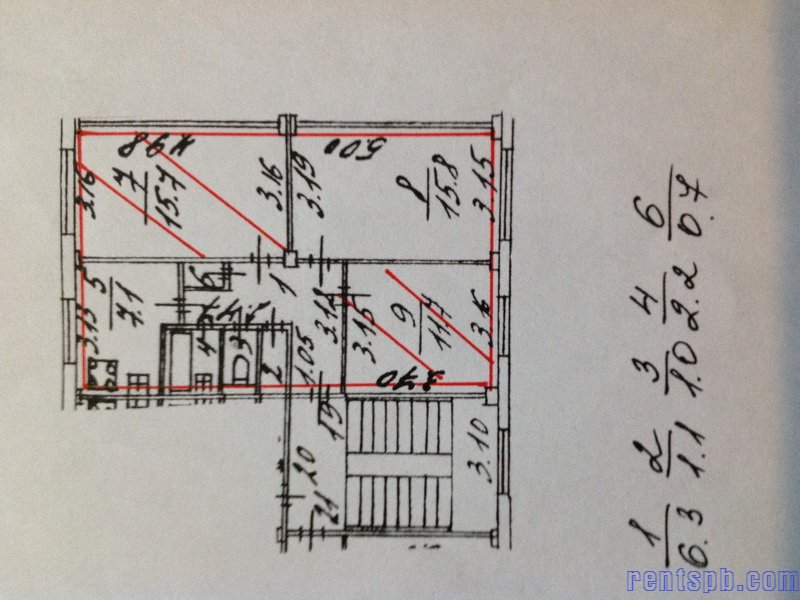 4.98
5.00
3.16
7
15.7
3.16
3.19
8
15.8
3.15
5
7.1
3.15
6
1
3.12
3.15
9
11.7
3.16
4
3
2
1.05
3.70
19
20
21
3.10
1 2 3 4 6
6.3 1.1 1.0 2.2 0.7
rentspb.com